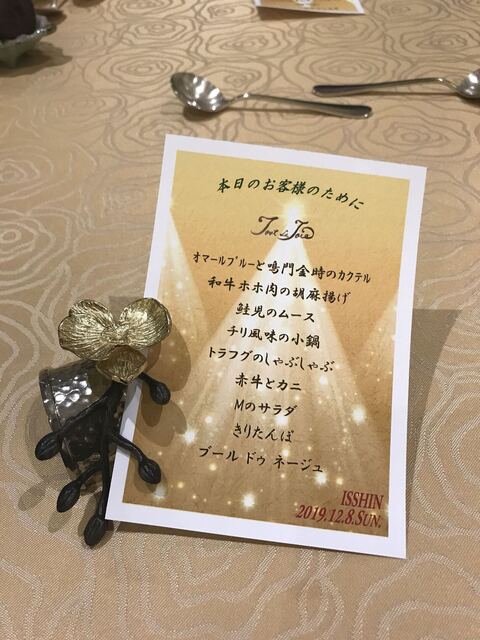 本日のお客様のために
オマールブルーと鳴門金時のカクテル
和牛ホホ肉の胡麻揚げ
鮭児のムース
チリ風味の小鍋
トラフグのしゃぶしゃぶ
赤牛とカニ
Mのサラダ
きりたんぽ
ブール ドゥ ネージュ
ISSHIN
2019.12.8.SUN.